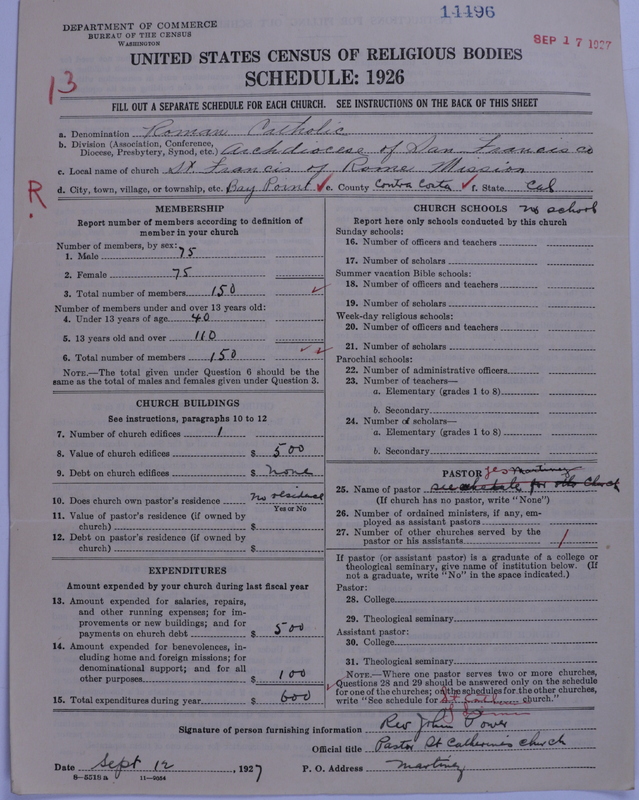 14496
DEPARTMENT OF COMMERCE
BUREAU OF THE CENSUS
WASHINGTON
SEP 17 1927
UNITED STATES CENSUS OF RELIGIOUS BODIES
SCHEDULE: 1926
13
FILL OUT A SEPARATE SCHEDULE FOR EACH CHURCH. SEE INSTRUCTIONS ON THE BACK OF THIS SHEET
a. Denomination Roman Catholic
b. Division (Association, Conference,
Diocese, Presbytery, Synod, etc.) Archdiocese of San Francisco
c. Local name of church St. Francis of Rome Mission
d. City, town, village, or township, etc. Bay Point e. County Contra Costa f. State Cal
R.
MEMBERSHIP
Report number of members according to definition of
member in your church
Number of members, by sex:
1. Male 75
2. Female 75
3. Total number of members 150
Number of members under and over 13 years old:
4. Under 13 years of age 40
5. 13 years old and over 110
6. Total number of members 150
NOTE.—The total given under Question 6 should be the
same as the total of males and females given under Question 3.
CHURCH BUILDINGS
See instructions, paragraphs 10 to 12
7. Number of church edifices 1
8. Value of church edifices $ 500
9. Debt on church edifices $ none
10. Does church own pastor's residence no residence
Yes or No
11. Value of pastor's residence (if owned by
church) $
12. Debt on pastor's residence (if owned by
church) $
EXPENDITURES
Amount expended by your church during last fiscal year
13. Amount expended for salaries, repairs,
and other running expenses; for im-
provements or new buildings; and for
payments on church debt $ 500
14. Amount expended for benevolences, in-
cluding home and foreign missions; for
denominational support; and for all
other purposes $ 100
15. Total expenditures during year $ 600
CHURCH SCHOOLS no school
Report here only schools conducted by this church
Sunday schools:
16. Number of officers and teachers
17. Number of scholars
Summer vacation Bible schools:
18. Number of officers and teachers
19. Number of scholars
Week-day religious schools:
20. Number of officers and teachers
21. Number of scholars
Parochial schools:
22. Number of administrative officers
23. Number of teachers—
a. Elementary (grades 1 to 8)
b. Secondary
24. Number of scholars—
a. Elementary (grades 1 to 8)
b. Secondary
PASTOR yes Martinez
25. Name of pastor see schedule for other church
(If church has no pastor, write "None")
26. Number of ordained ministers, if any, em-
ployed as assistant pastors
27. Number of other churches served by the
pastor or his assistants 1
If pastor (or assistant pastor) is a graduate of a college or
theological seminary, give name of institution below. (If
not a graduate, write "No" in the space indicated.)
Pastor:
28. College
29. Theological seminary
Assistant pastor:
30. College
31. Theological seminary
NOTE.—Where one pastor serves two or more churches,
Questions 28 and 29 should be answered only on the schedule
for one of the churches; on the schedules for the other churches,
write "See schedule for St. church."
Signature of person furnishing information Rev John Power
Official title Pastor St Catherine's church
Date Sept 12, 1927 P. O. Address Martinez
8-5518a 11-9054